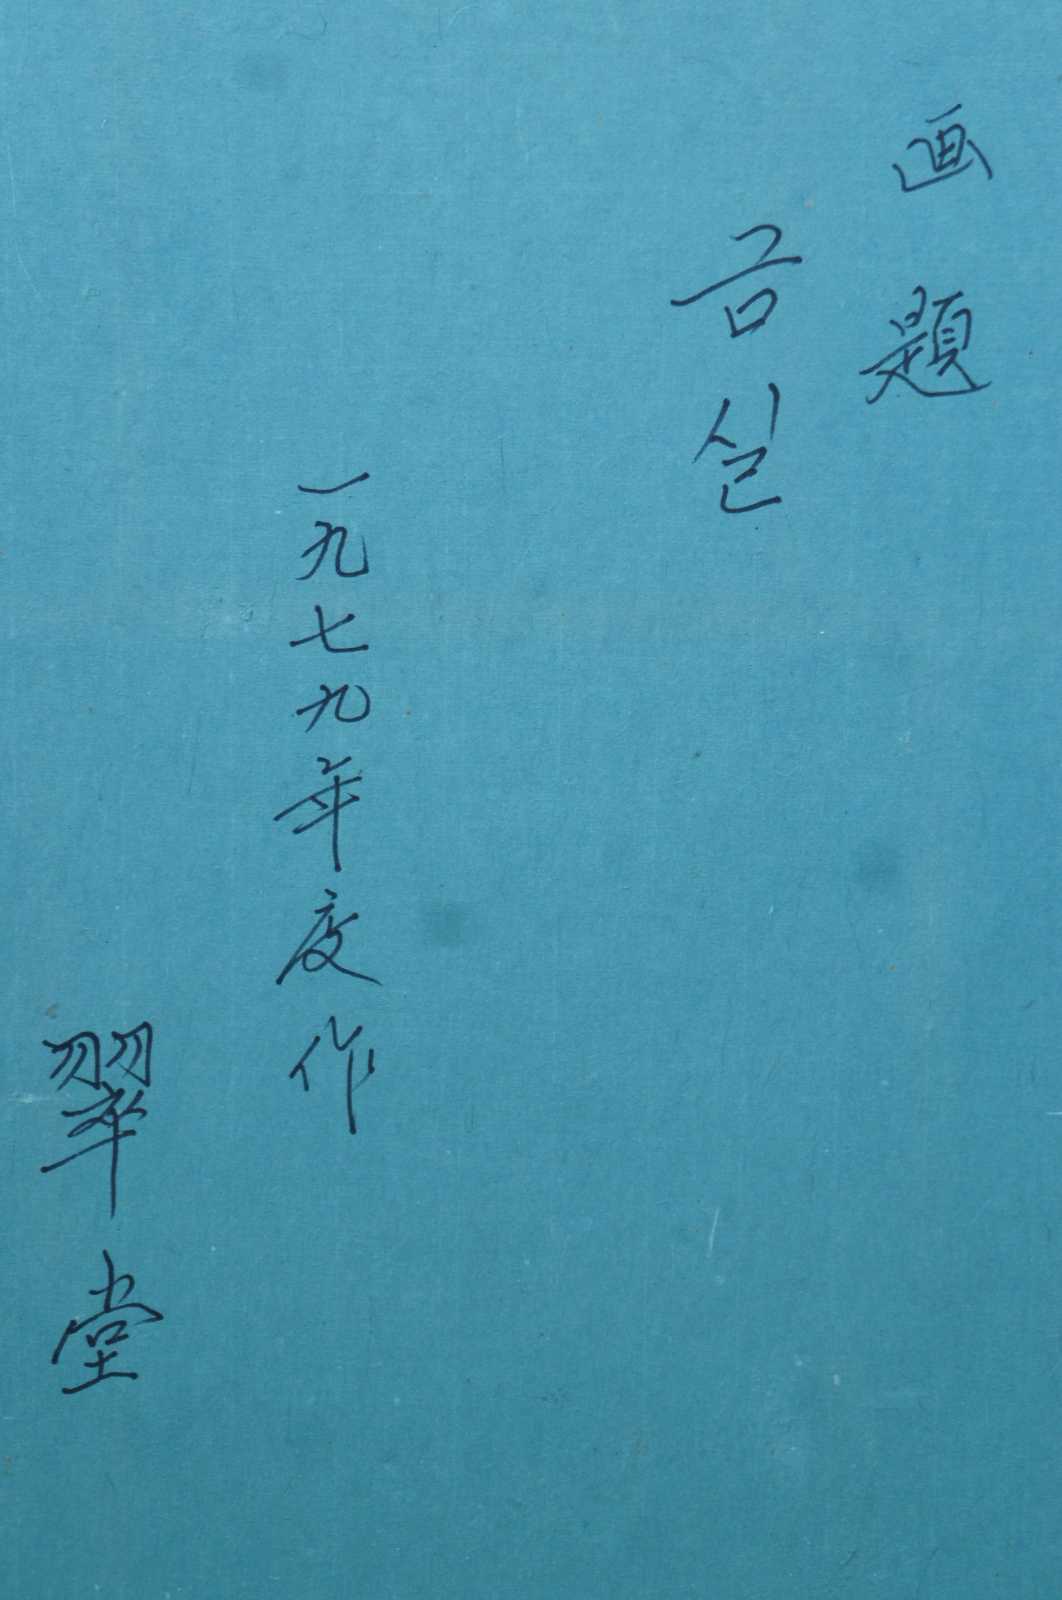 画題
금실
一九七九年度作
翠堂